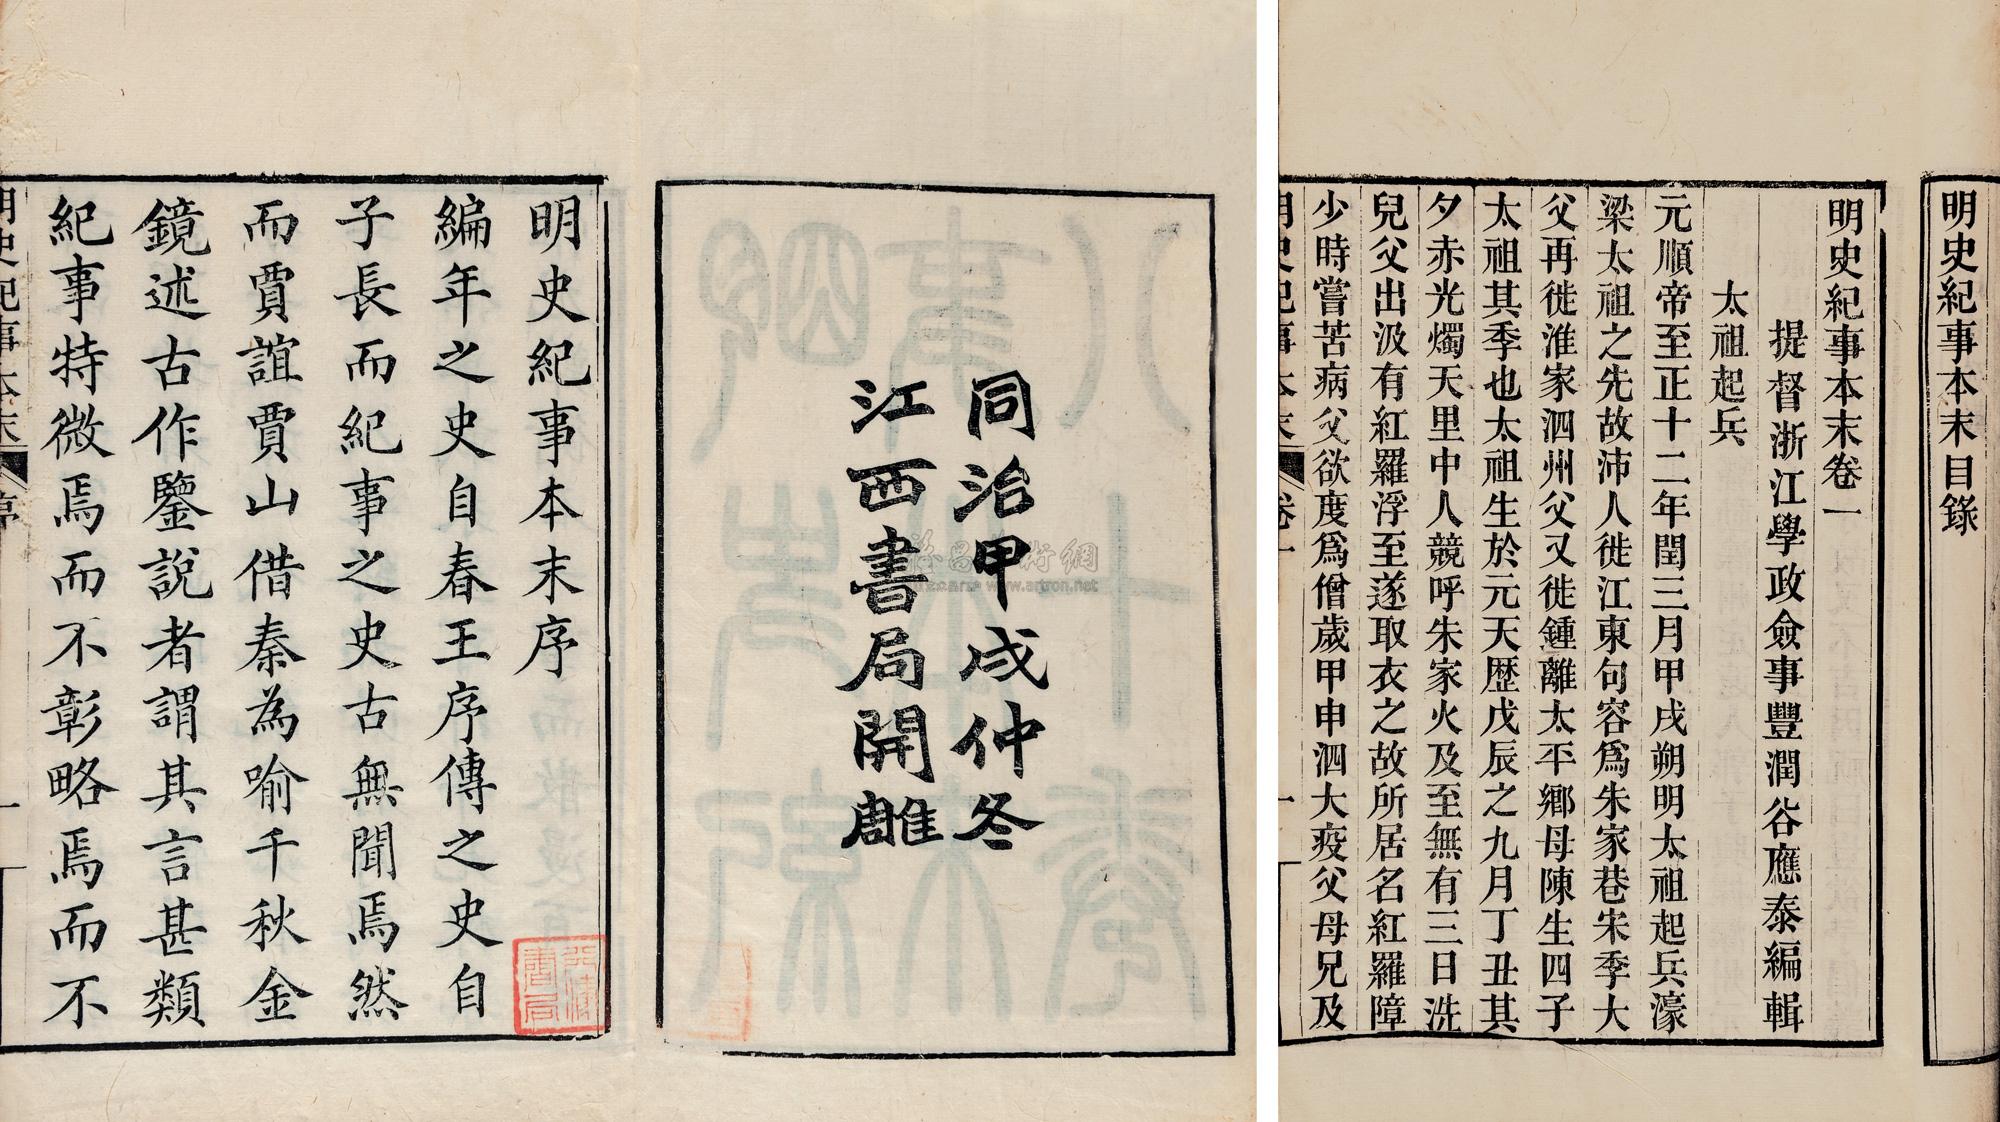 明史紀事本末目錄
明史紀事本末卷一
提督浙江學政僉事豐潤谷應泰編輯
太祖起兵
元順帝至正十二年閏三月甲戌朔明太祖起兵濠
梁太祖之先故沛人徙江東句容爲朱家巷宋季大
父再徙淮家泗州父又徙鍾離太平鄉母陳生四子
太祖其季也太祖生於元天歷戊辰之九月丁丑其
夕赤光燭天里中人競呼朱家火及至無有三日洗
兒父出汲有紅羅浮至遂取衣之故所居名紅羅障
少時嘗苦病父欲度爲僧歲甲申泗大疫父母兄及
明史紀事本末 卷一 一
同治甲戌仲冬
江西書局開雕
明史紀事本末序
編年之史自春王序傳之史自
子長而紀事之史古無聞焉然
而賈誼賈山借秦為喻千秋金
鏡述古作鑒說者謂其言甚類
紀事特微焉而不彰略焉而不
明史紀事本末 序 一
www.artron.net